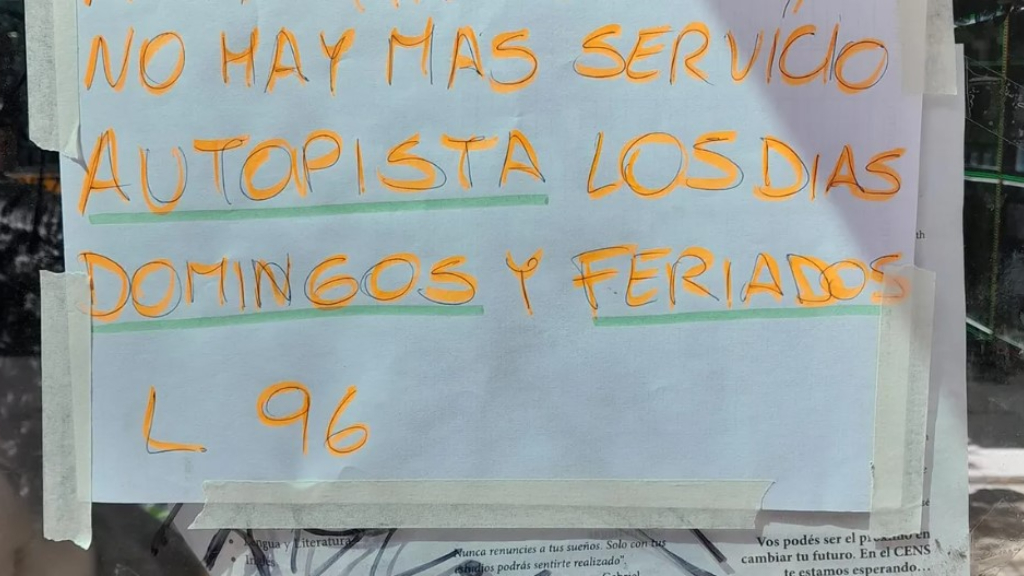 NO HAY MAS SERVICIO
AUTOPISTA LOS DIAS
DOMINGOS Y FERIADOS
L 96
Lengua y Literatura
Nunca renuncies a tus sueños. Solo con tus
estudios podrás sentirte realizado".
Gabriel
Vos podés ser el próximo en
cambiar tu futuro. En el CENS
te estamos esperando...